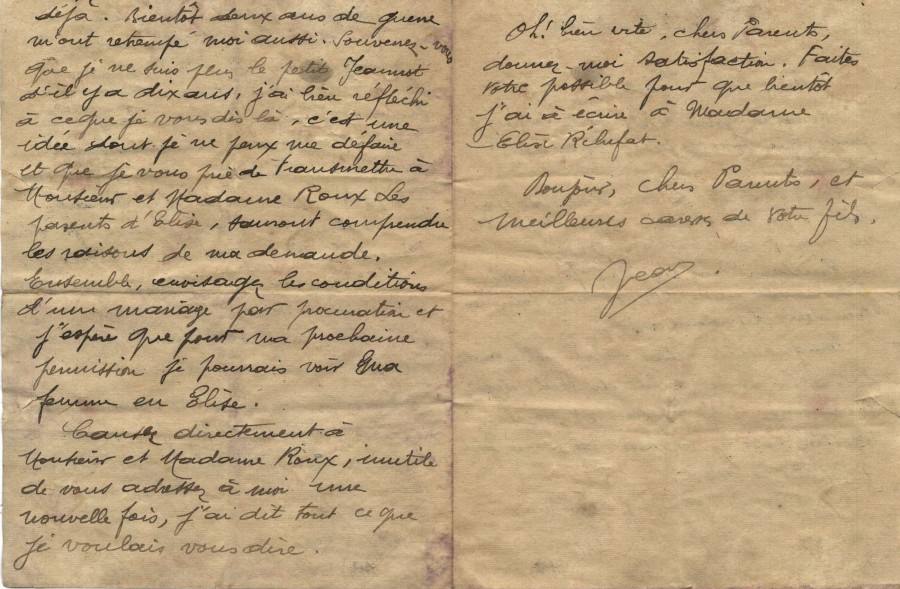 déjà. Bientôt deux ans de guerre
m'ont retrempé moi aussi. Souvenez-vous
que je ne suis plus le petit Jeannot
d'il y a dix ans, j'ai bien réfléchi
à ce que je vous dis là, c'est une
idée dont je ne peux me défaire
et que je vous prie de transmettre à
Monsieur et Madame Roux. Les
parents d'Elise, sauront comprendre
les raisons de ma demande.
Ensemble, envisagez les conditions
d'un mariage par procuration et
j'espère que pour ma prochaine
permission je pourrais voir ma
femme en Elise.
Causez directement à
Monsieur et Madame Roux, inutile
de vous adresser à moi une
nouvelle fois, j'ai dit tout ce que
je voulais vous dire.
Oh! bien vite, chers Parents,
donnez-moi satisfaction. Faites
votre possible pour que bientôt
j'ai à écrire à Madame
Elise
Bonjour, chers Parents, et
meilleures caresses de votre fils.
Jean